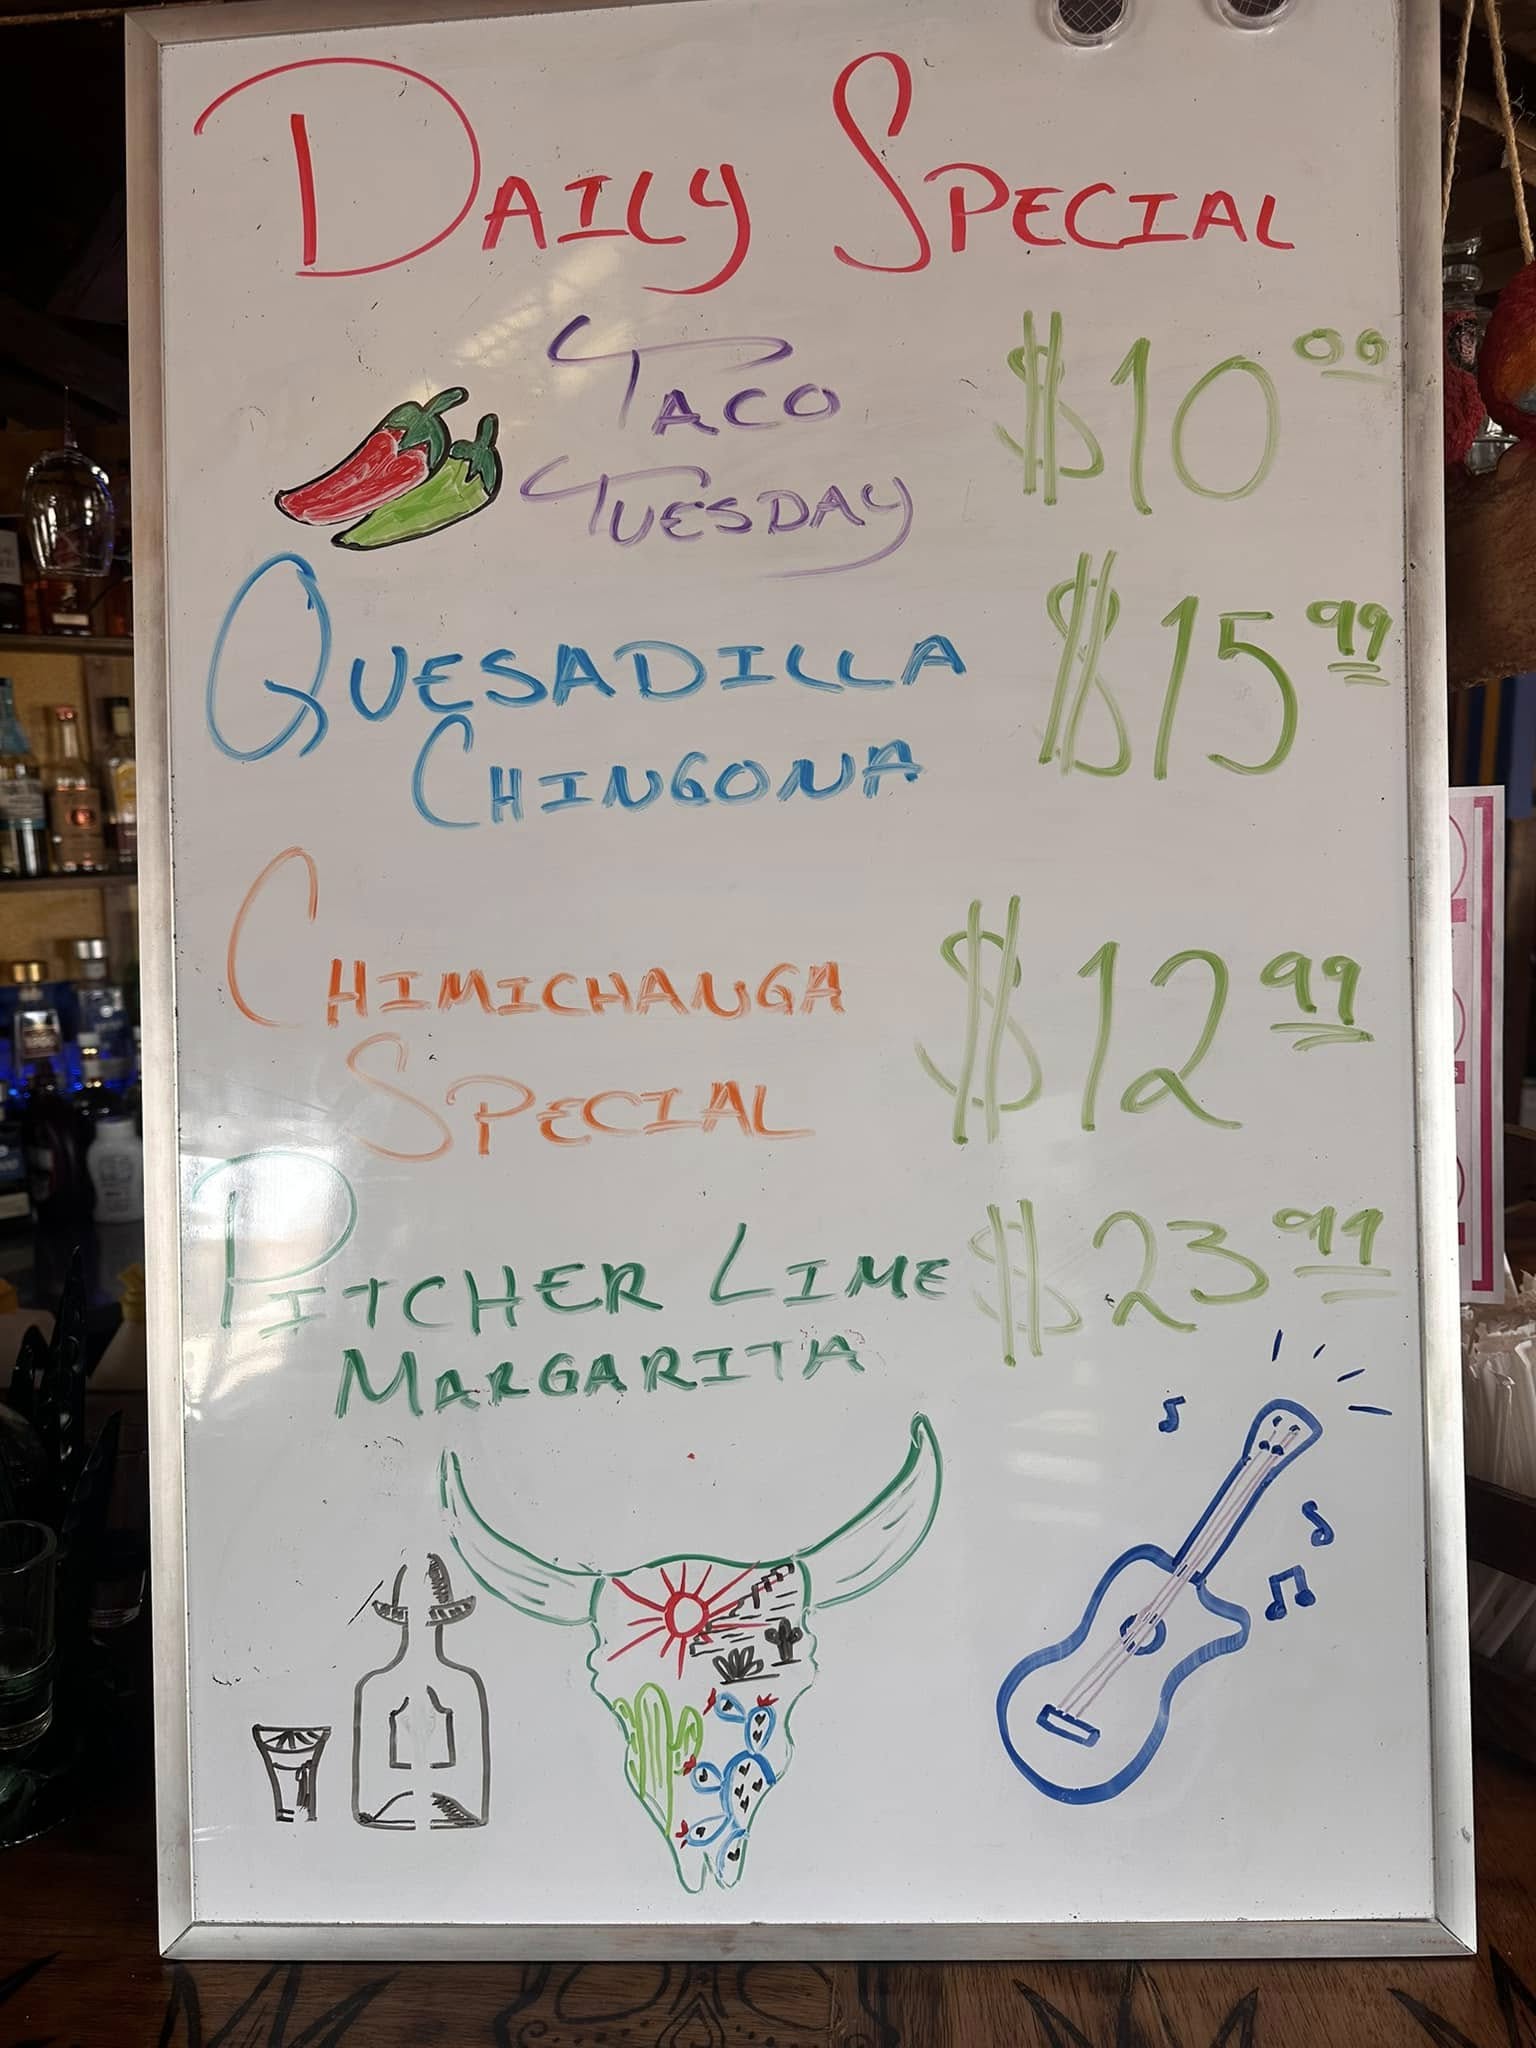 DAILY SPECIAL
TACO
TUESDAY
$10.00
QUESADILLA
CHINGONA
$15.99
CHIMICHANGA
SPECIAL
$12.99
PITCHER LIME
MARGARITA
$23.99